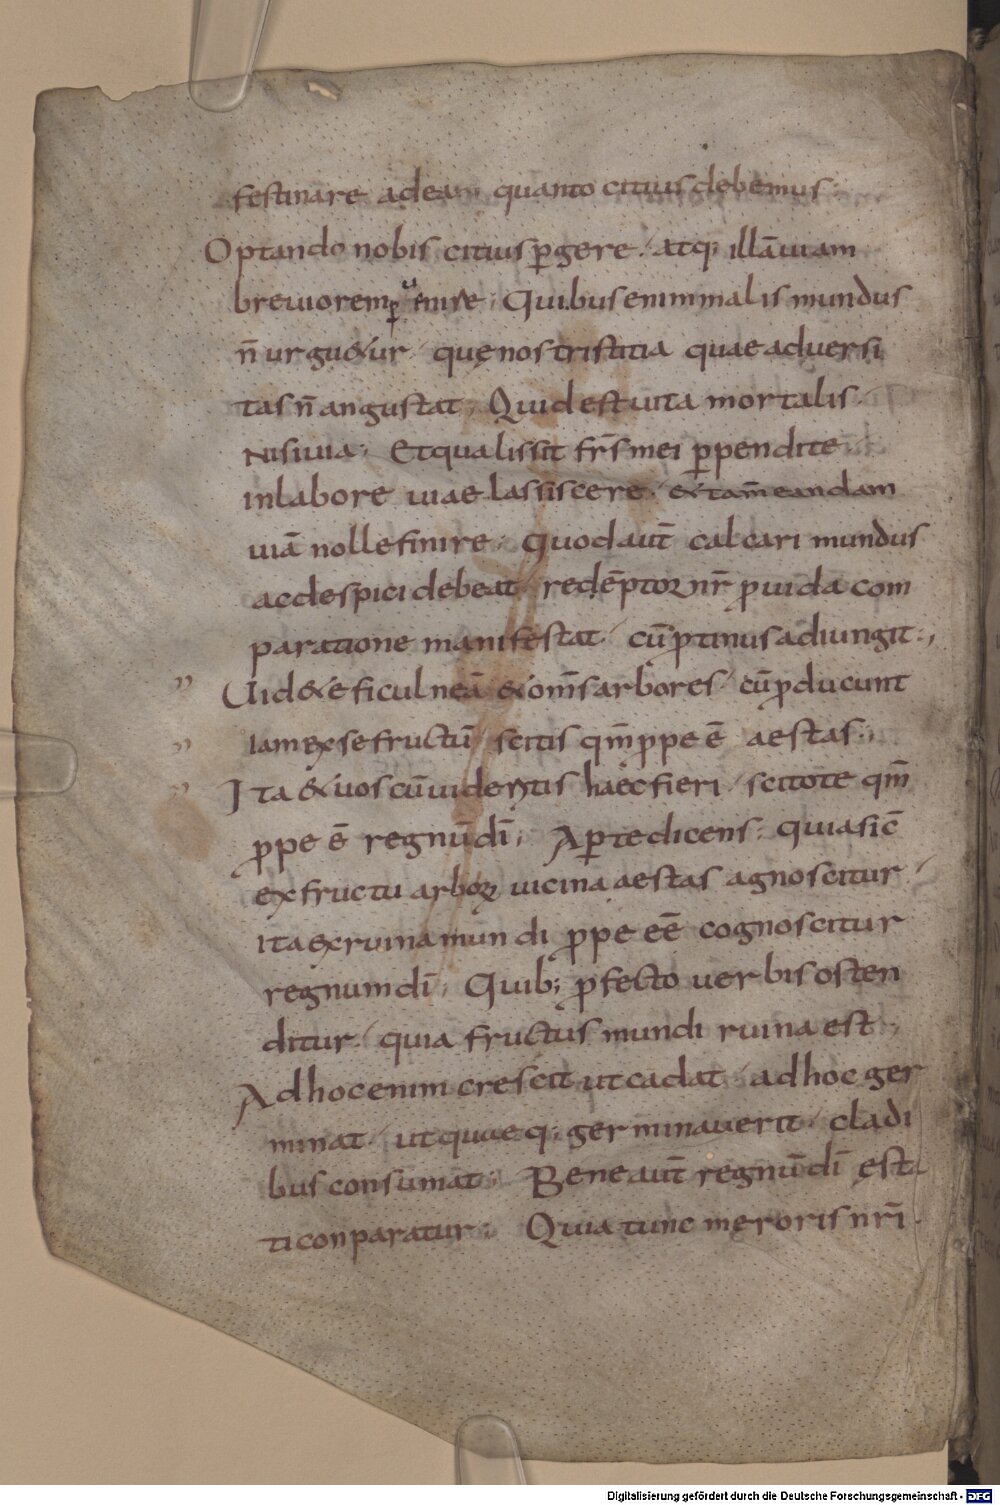 festinare adeam quanto citius debemus.
Optando nobis citius ꝑgere. atq; illā uiam
breuiorem ꝑuenire; Quibus enim malis mundus
n̄ urgu&ur. quę nos tristitia quae aduersi
tas n̄ angustat; Quid est uita mortalis.
Nisi uia; Et qualis sit fr̄s mei ꝑpendite.
in labore uiae lassiscere. & tam̄ eandam
uiā nolle finire; Quod aut̄ calcari mundus
ac despici debeat. redēptor nr̄ ꝓuida com
paratione manifestat. cū ꝓtinus adiungit;
Uid&e ficulneā & om̄s arbores. cū ꝓducunt
iam ex se fructū. scitis qm̄ ꝓpe ē aestas;
Ita & uos cū uideritis haec fieri. scitote qm̄
ꝓpe ē regnū dī; Aꝑte dicens; quia sic̄
ex fructu arborꝝ uicina aestas agnoscitur.
ita ex ruina mundi ꝓpe eē cognoscitur
regnum dī; Quib; ꝓfecto uerbis osten
ditur. quia fructus mundi ruina est;
Ad hoc enim crescit ut cadat. ad hoc ger
minat. ut quaeq; germinauerit. cladi
bus consumat; Bene aut̄ regnū dī ęsta
ti conparatur; Quia tunc męroris nr̄i
Digitalisierung gefördert durch die Deutsche Forschungsgemeinschaft - DFG